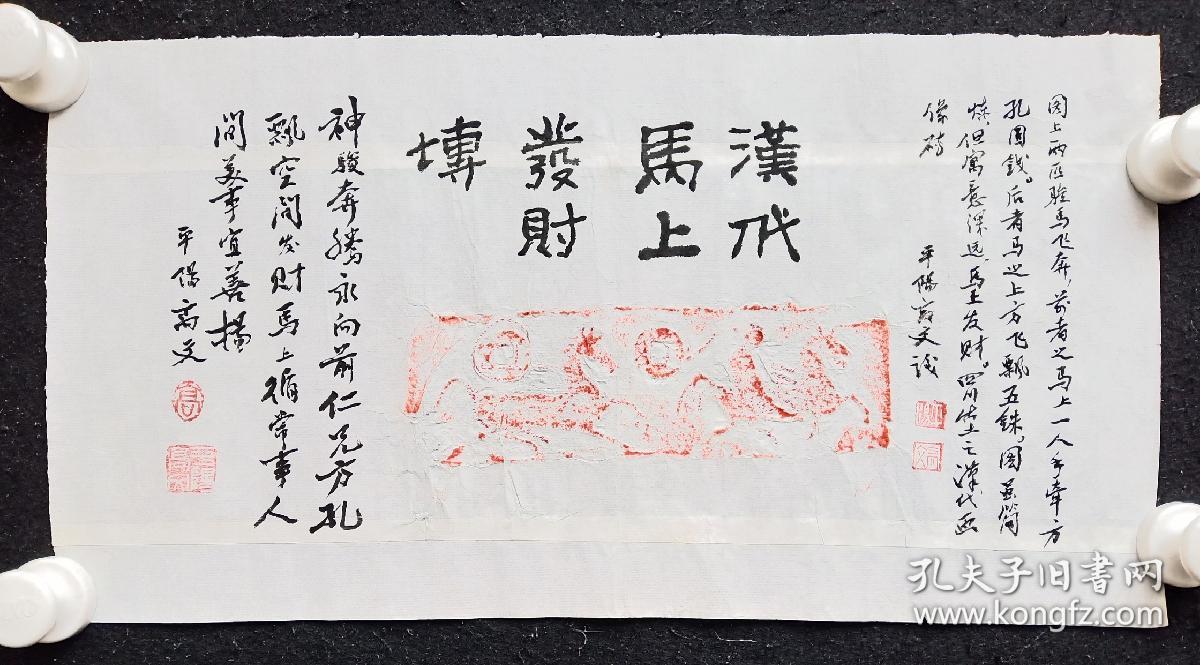 图上两匹骏马飞奔，前者之马上一人手牵方
孔圆钱。后者马之上方飞飘五銖，图虽简
炼，但寓意深远，马上发财。四川出土之漢代画
像砖
平陽高文識
漢代
馬上
發財
塼
神駿奔騰永向前仁兄方孔
飘空间发财馬上循常事人
间美事宜善揚
平陽高文
孔夫子旧书网
www.kongfz.com